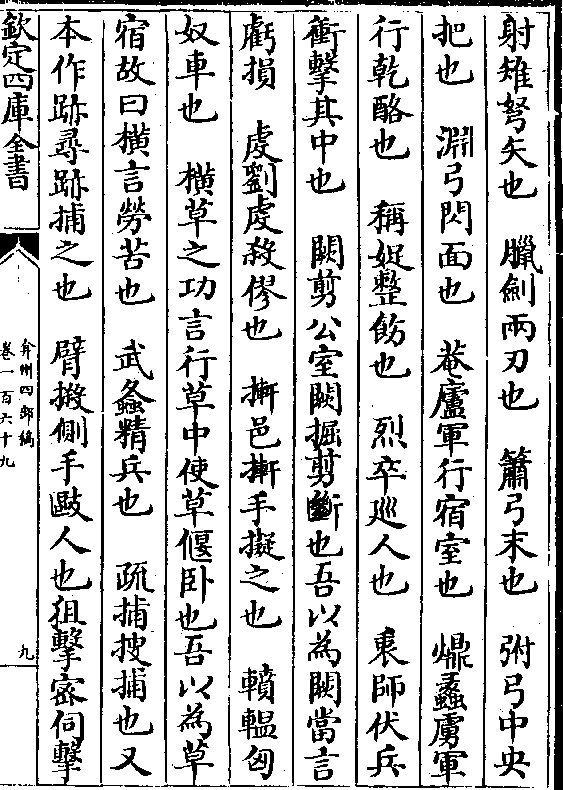 射雉弩矢也　臘劍兩刃也　簫弓末也　弣弓中央
把也　淵弓閃面也　菴廬軍行宿室也　爊蠡虜軍
行乾酪也　稱娖整飭也　烈卒廵人也　乗師伏兵
衝擊其中也　闕剪公室闕掘剪斷也吾以為闕當言
虧損　虔劉虔殺僇也　摲邑摲手擬之也　轒輼匈
奴車也　橫草之功言行草中使草偃卧也吾以為草
宿故曰橫言勞苦也　武鉱精兵也　疏捕搜捕也又
本作跡尋跡捕之也　臂搬側手毆人也狙擊宻伺擊
欽定四庫全書
弇州四部稿
卷一百六十九
九